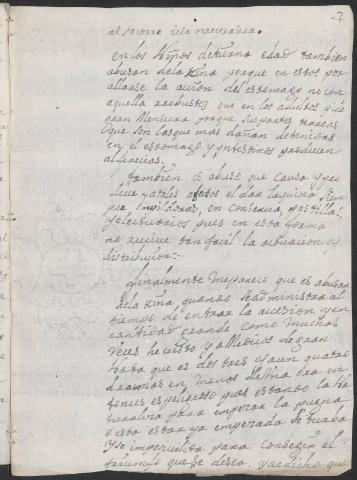 7
al socorro dela naturaleza.
en los Niños de tierna edad tambien
abusan dela Kina porque en estos por
allarse la acción del estomago no con
aquella robustez que en los adultos y de
gran Mensura porque sus partes terreas
que son las que mas dañan detenidas
en el estomago y yntestinos producen
tambien es abuso que causa y pro
duce yatales afectos el dar la quina siem
pre en pildoras, en conserva, pastillas,
y electuarios pues en esta forma
no recive tan facil la actuacion y
distribucion:-
Finalmente me parece que es abuso
dela Kina quando se administra al
tiempo de entrar la accesion y en
cantidad grande como muchas
veces he visto y a Medicos de gran
que es dos tres y aun quatro
dracmas en menos de una ora en
tonces es peligroso pues estando la na
turaleza para empezar la pugna
o esta estar ya empezada se turba
y se imposibilita para conseguir el
que se desea, ya e dicho que